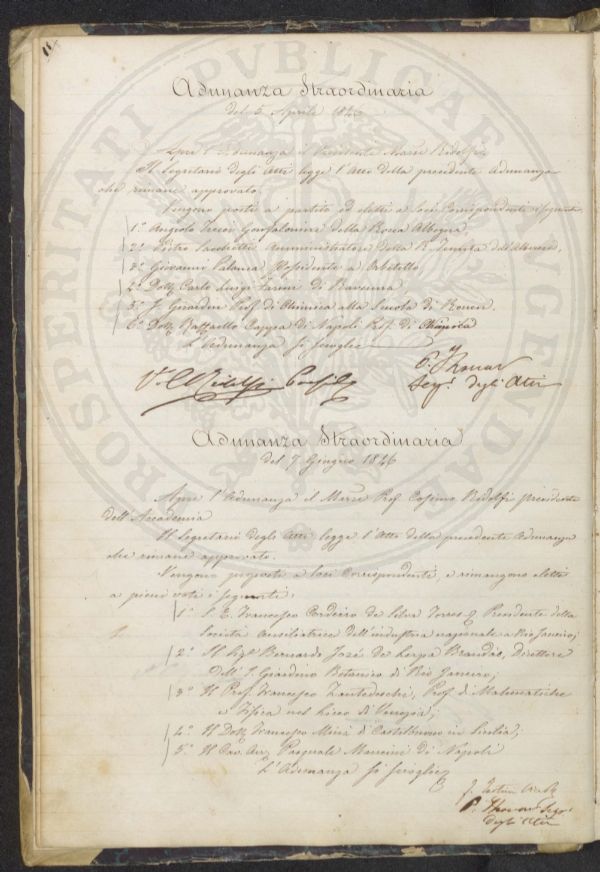 11
PROSPERITATI PUBLICAE AUGENDAE
Adunanza Straordinaria
del 5 Aprile 1846
Apre l'Adunanza il Presidente Marse Ridolfi
Il Segretario degli Atti legge l'Atto della precedente Adunanza
che rimane approvato
Vengono posti a partito ed eletti a Soci Corrispondenti i seguenti
1.° Angiolo Gonfaloniere della Rocca Albegna
2.° Pietro Sacchetti Amministratore della R. Tenuta dell'Alberese,
3.° Giovanni Possidente a Orbetello
4.° Dott. Carlo Luigi Farini di Ravenna
5.° J. Girardin Prof. di Chimica alla Scuola di Rouen
6.° Dott. Raffaello Cappa di Napoli Prof. di Chimica
L'Adunanza si scioglie
V. C. Ridolfi
Seg. degli Atti
Adunanza Straordinaria
del 7 Giugno 1846
Apre l'Adunanza il Marse Prof. Cosimo Ridolfi presidente
dell'Accademia
Il Segretario degli Atti legge l'Atto della precedente Adunanza
che rimane approvato.
Vengono proposti a Soci Corrispondenti, e rimangono eletti
a pieni voti i seguenti:
1.° S. E. Francesco Cordeiro da Silva Torres Presidente della
Società Ausiliatrice dell'industria nazionale a Rio Janeiro;
2.° Il Sig. Bernardo José de Serpa Brandão, Direttore
dell'I. Giardino Botanico di Rio Janeiro;
3.° Il Prof. Francesco Zantedeschi, Prof. di Matematiche
e Fisica nel Liceo di Venezia;
4.° Il Dott. Francesco Minà di Castelbuono in Sicilia;
5.° Il Cav. Avv. Pasquale Mancini di Napoli
L'Adunanza si scioglie
degli Atti